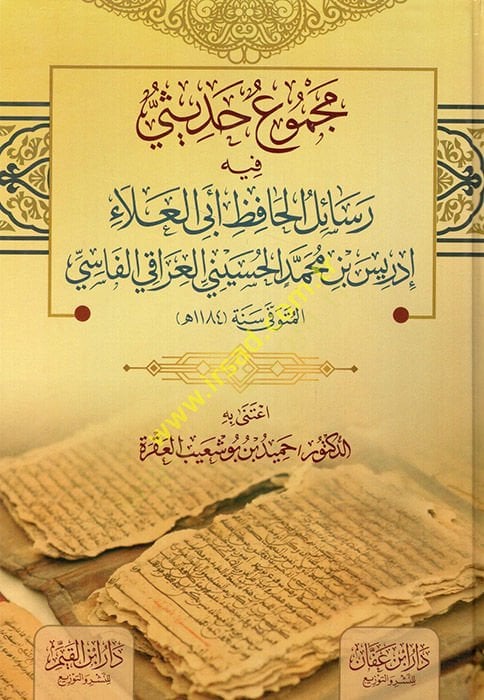 مَجْمُوعُ حَدِيثِيُّ
فيه
رَسَائِلُ الحَافِظِ أَبِي العَلَاءِ
إِدْرِيسَ بْنِ مُحَمَّدٍ الحُسَيْنِيِّ العِرَاقِيِّ الفَاسِيِّ
المُتَوَفَّى سَنَة (١١٨٤هـ)
اعْتَنَى بِهِ
الدُّكْتُور/ حَمِيدُ بْنُ بُوشُعَيْب العَقْرَة
www.irsad.com.tr
دَارُ ابْنِ القَيِّمِ
لِلنَّشْرِ وَالتَّوْزِيعِ
دَارُ ابْنِ عَفَّانَ
لِلنَّشْرِ وَالتَّوْزِيعِ